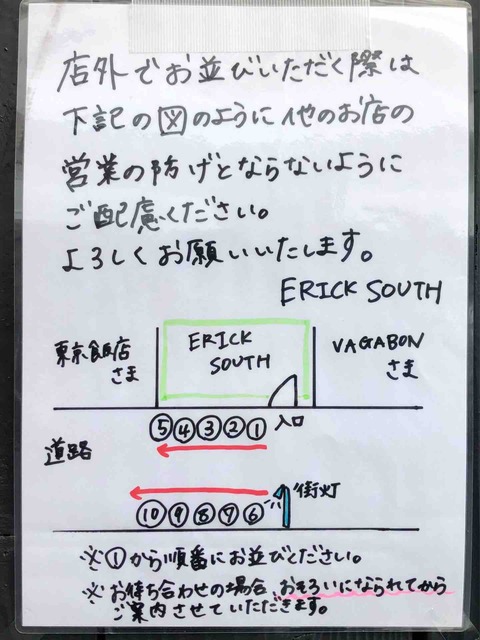 店外でお並びいただく際は
下記の図のように他のお店の
営業の防げとならないように
ご配慮ください。
よろしくお願いいたします。
ERICK SOUTH
東京飯店
さま
ERICK
SOUTH
VAGABON
さま
⑤④③②①
入口
道路
街灯
⑩⑨⑧⑦⑥
※①から順番にお並びください。
※お待ち合わせの場合 おそろいになられてから
ご案内させていただきます。